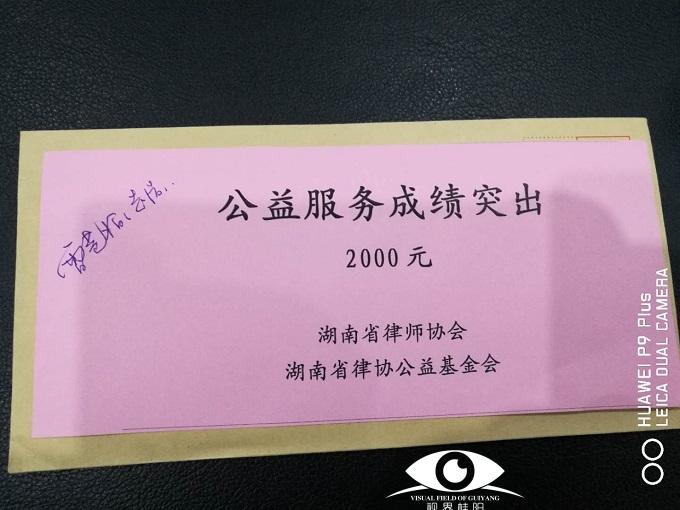 公益服务成绩突出
2000 元
湖南省律师协会
湖南省律协公益基金会
HUAWEI P9 Plus
LEICA DUAL CAMERA
VISUAL FIELD OF GUIYANG
视界桂阳